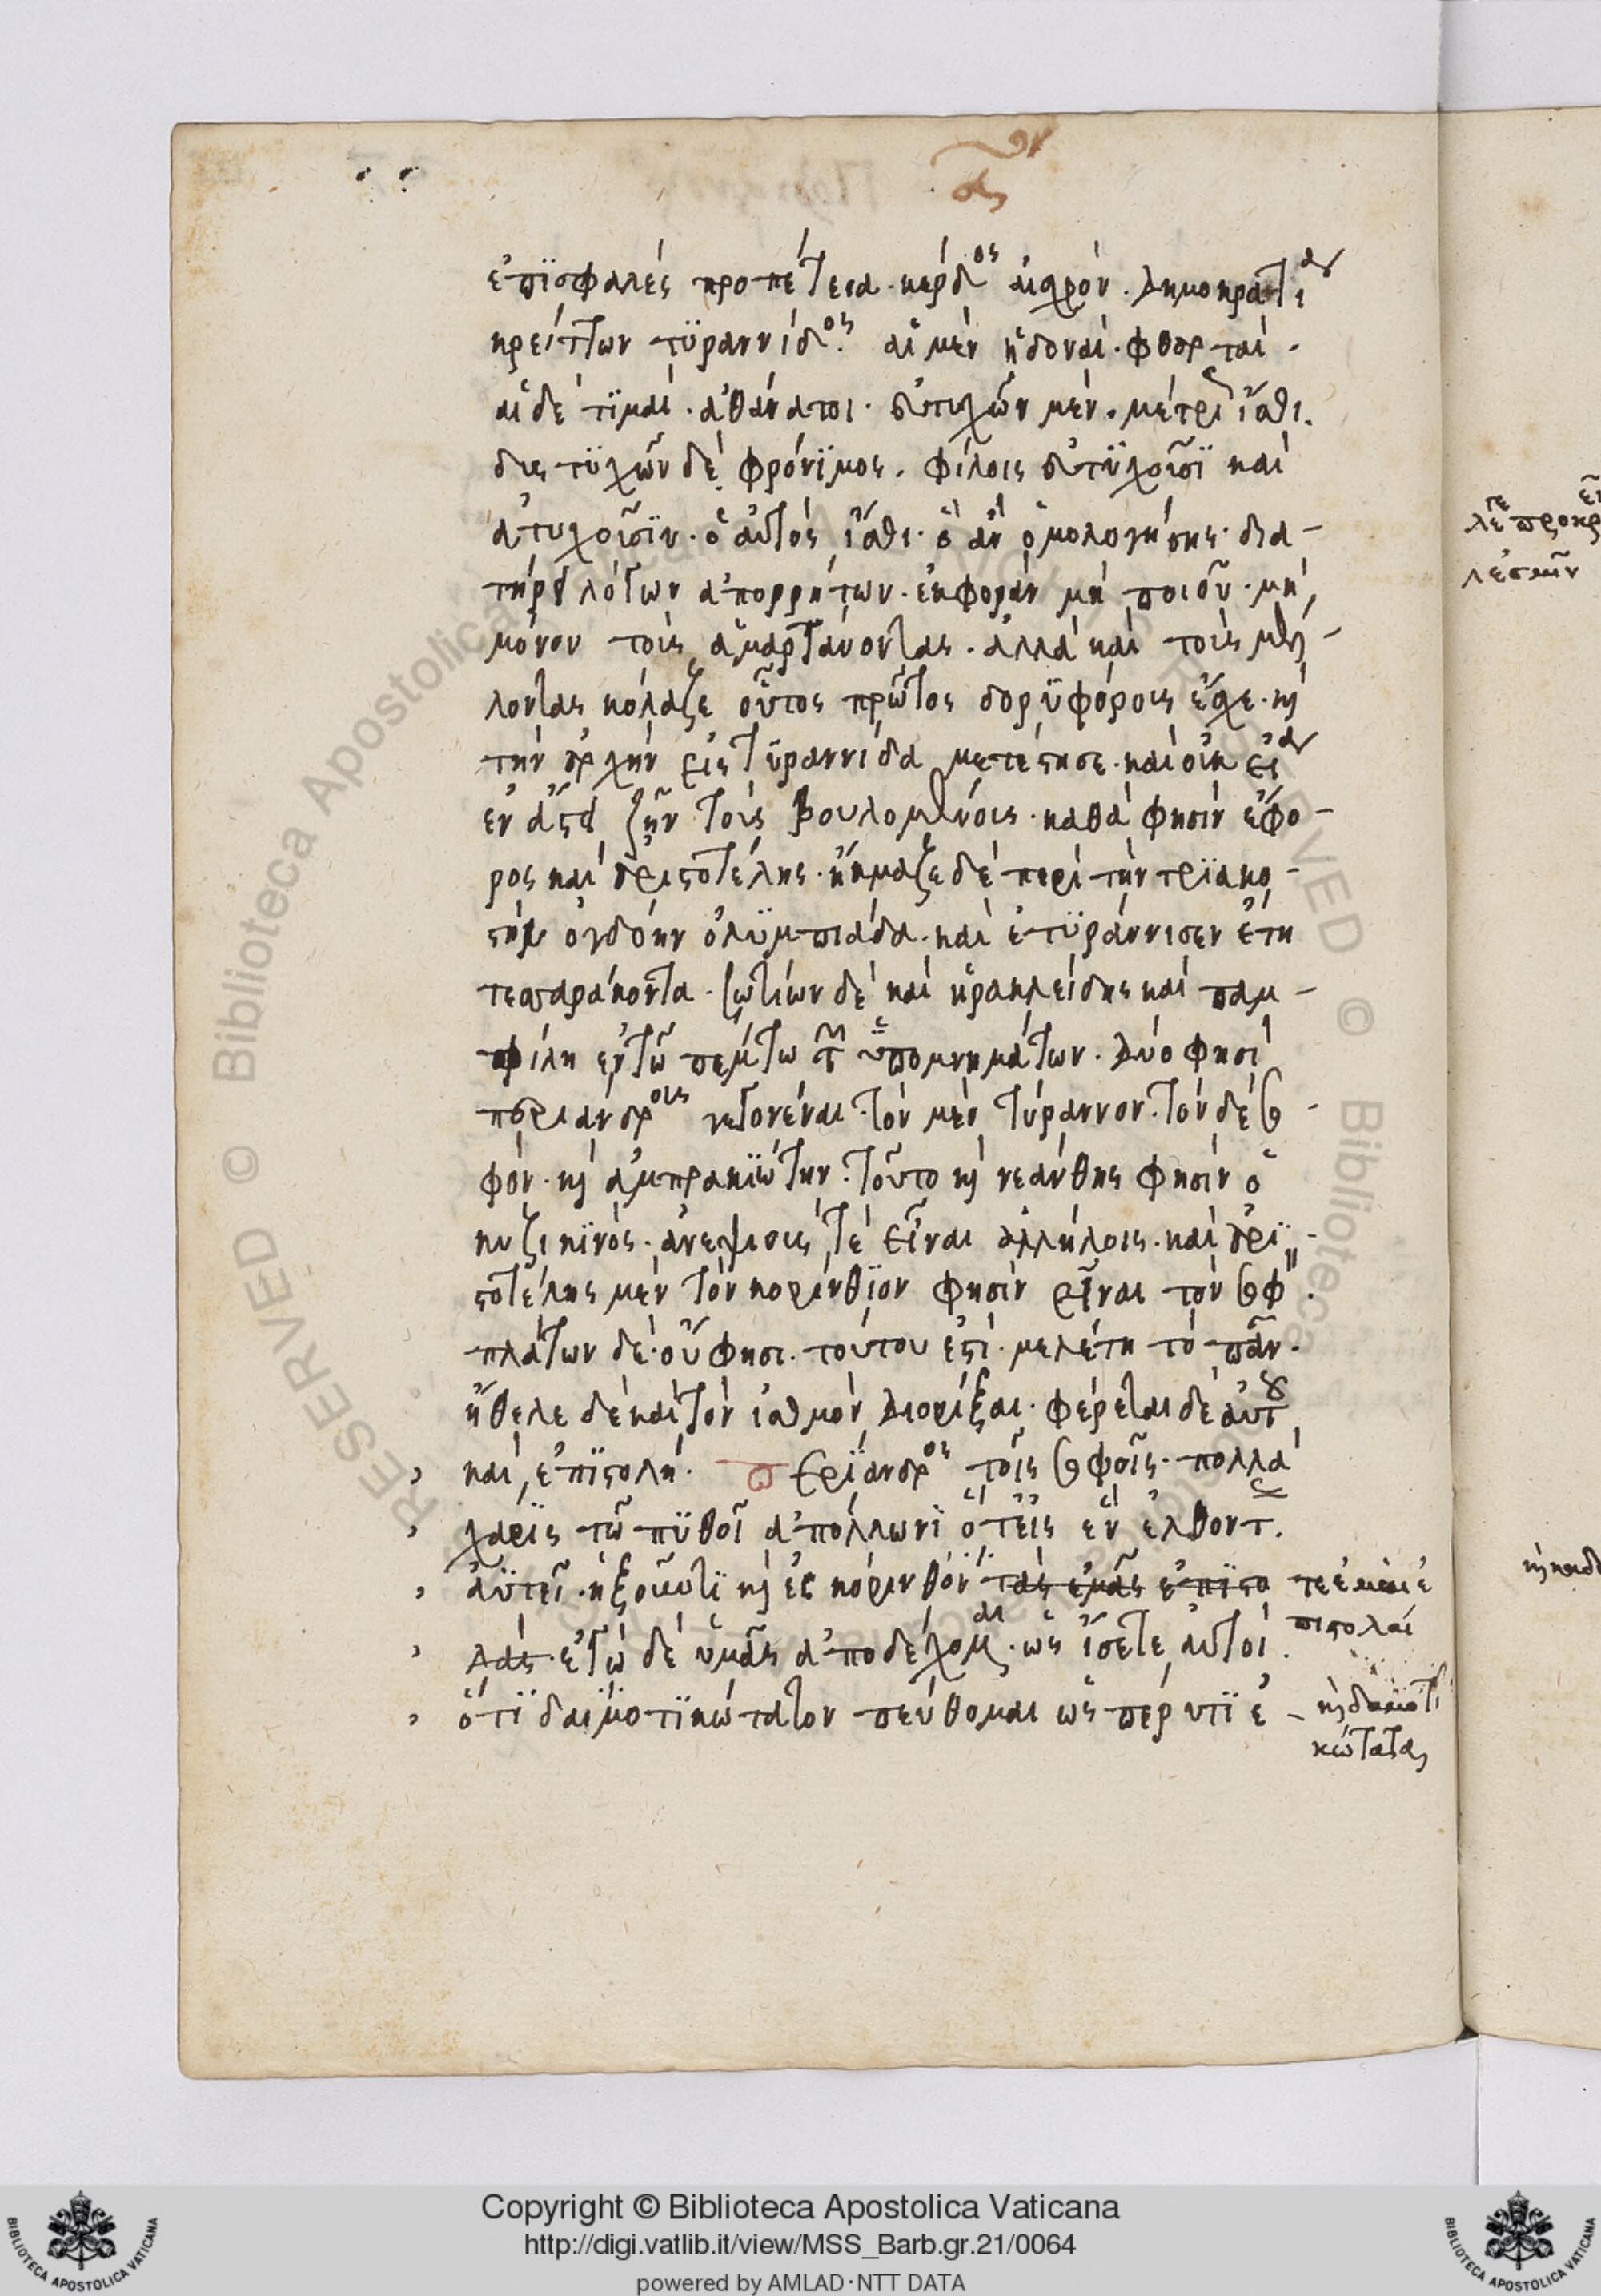 ἐπϊσφαλές προπέτεια. κέρδος αἰσχρόν. Δημοκρατία
κρείττων τϋραννίδος. αἱ μὲν ἡδοναί. φθαρταί.
αἱ δὲ τϊμαί. ἀθάνατοι. εὐτυχῶν μὲν. μέτριος ἴσθι.
δυστϋχῶν δὲ φρόνϊμος. φίλοις εὐτϋχοῦσϊ καὶ
ἀτυχοῦσϊν. ὁ αὐτὸς ἴσθι. ὃ ἂν ὁμολογήσῃς. δια-
τήρει λόγων ἀπορρήτων. ἐκφορὰν μὴ ποιοῦ. μὴ
μόνον τοὺς ἁμαρτάνοντας. ἀλλὰ καὶ τοὺς μέλ-
λοντας κόλαζε οὗτος πρῶτος δορϋφόρους ἔσχε. καὶ
τὴν ἀρχὴν εἰς τϋραννίδα μετέστησε. καὶ οὐκ εἴα
ἐν ἄστει ζῆν τοὺς βουλομένους. καθά φησιν ἔφο-
ρος καὶ ἀριστοτέλης. ἤκμαζε δὲ περὶ τὴν τρϊακο-
στὴν ὀγδόην ὀλϋμπιάδα. καὶ ἐτϋράννισεν ἔτη
τεσσαράκοντα. σωτίων δὲ καὶ ἡρακλείδης καὶ παμ-
φίλη ἐν τῶ πέμπτω τῶν ὑπομνημάτων. Δύο φησὶ
περιάνδρους γεγονέναι. τὸν μὲν τύραννον. τὸν δὲ σο-
φόν. καὶ ἀμπρακϊώτην. τοῦτο καὶ νεάνθης φησὶν ὁ
κυζικϊνός. ἀνεψιούς τὲ εἶναι ἀλλήλοις. καὶ ἀρϊ-
στοτέλης μὲν τὸν κορίνθϊον φησὶν εἶναι τὸν σοφόν.
πλάτων δὲ. οὔ φησι. τούτου ἐστὶ. μελέτη τὸ πᾶν.
ἤθελε δὲ καὶ τὸν ἰσθμὸν Διορύξαι. φέρεται δὲ αὐτοῦ
καὶ ἐπϊστολή. Περΐανδρος τοῖς σοφοῖς. πολλὰ
χάρϊς τῶ πϋθοῖ ἀπόλλωνϊ ὅτεϊς ἓν ἐλθόντας.
αὐτεῖ. ἠξοῦντϊ καὶ ἐς κόρινθον τὰς ἐμὰς ἐπϊστο τε ἐμαὶ ἐ
λάς. ἐγὼ δὲ ὑμᾶς ἀποδέχομαι. ὡς ἴσετε αὐτοί. πιστολαί
ὅτϊ δαϊμοτϊκώτατον πεύθομαι ὡς πέρυτϊ ἐ- καὶ δαμοτι
κώτατα